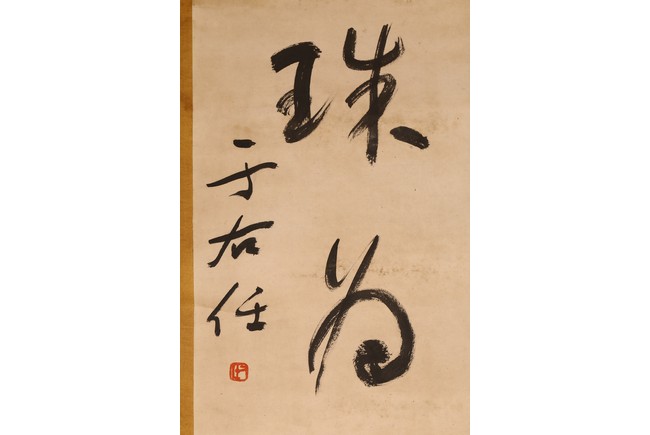 珠为
于右任